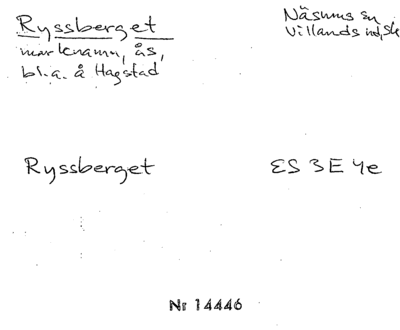 Ryssberget
marknamn, ås,
bl.a. å Hagstad
Näsums sn
Villands hd, Sk
Ryssberget
ES 3E 4e
Nr 14446